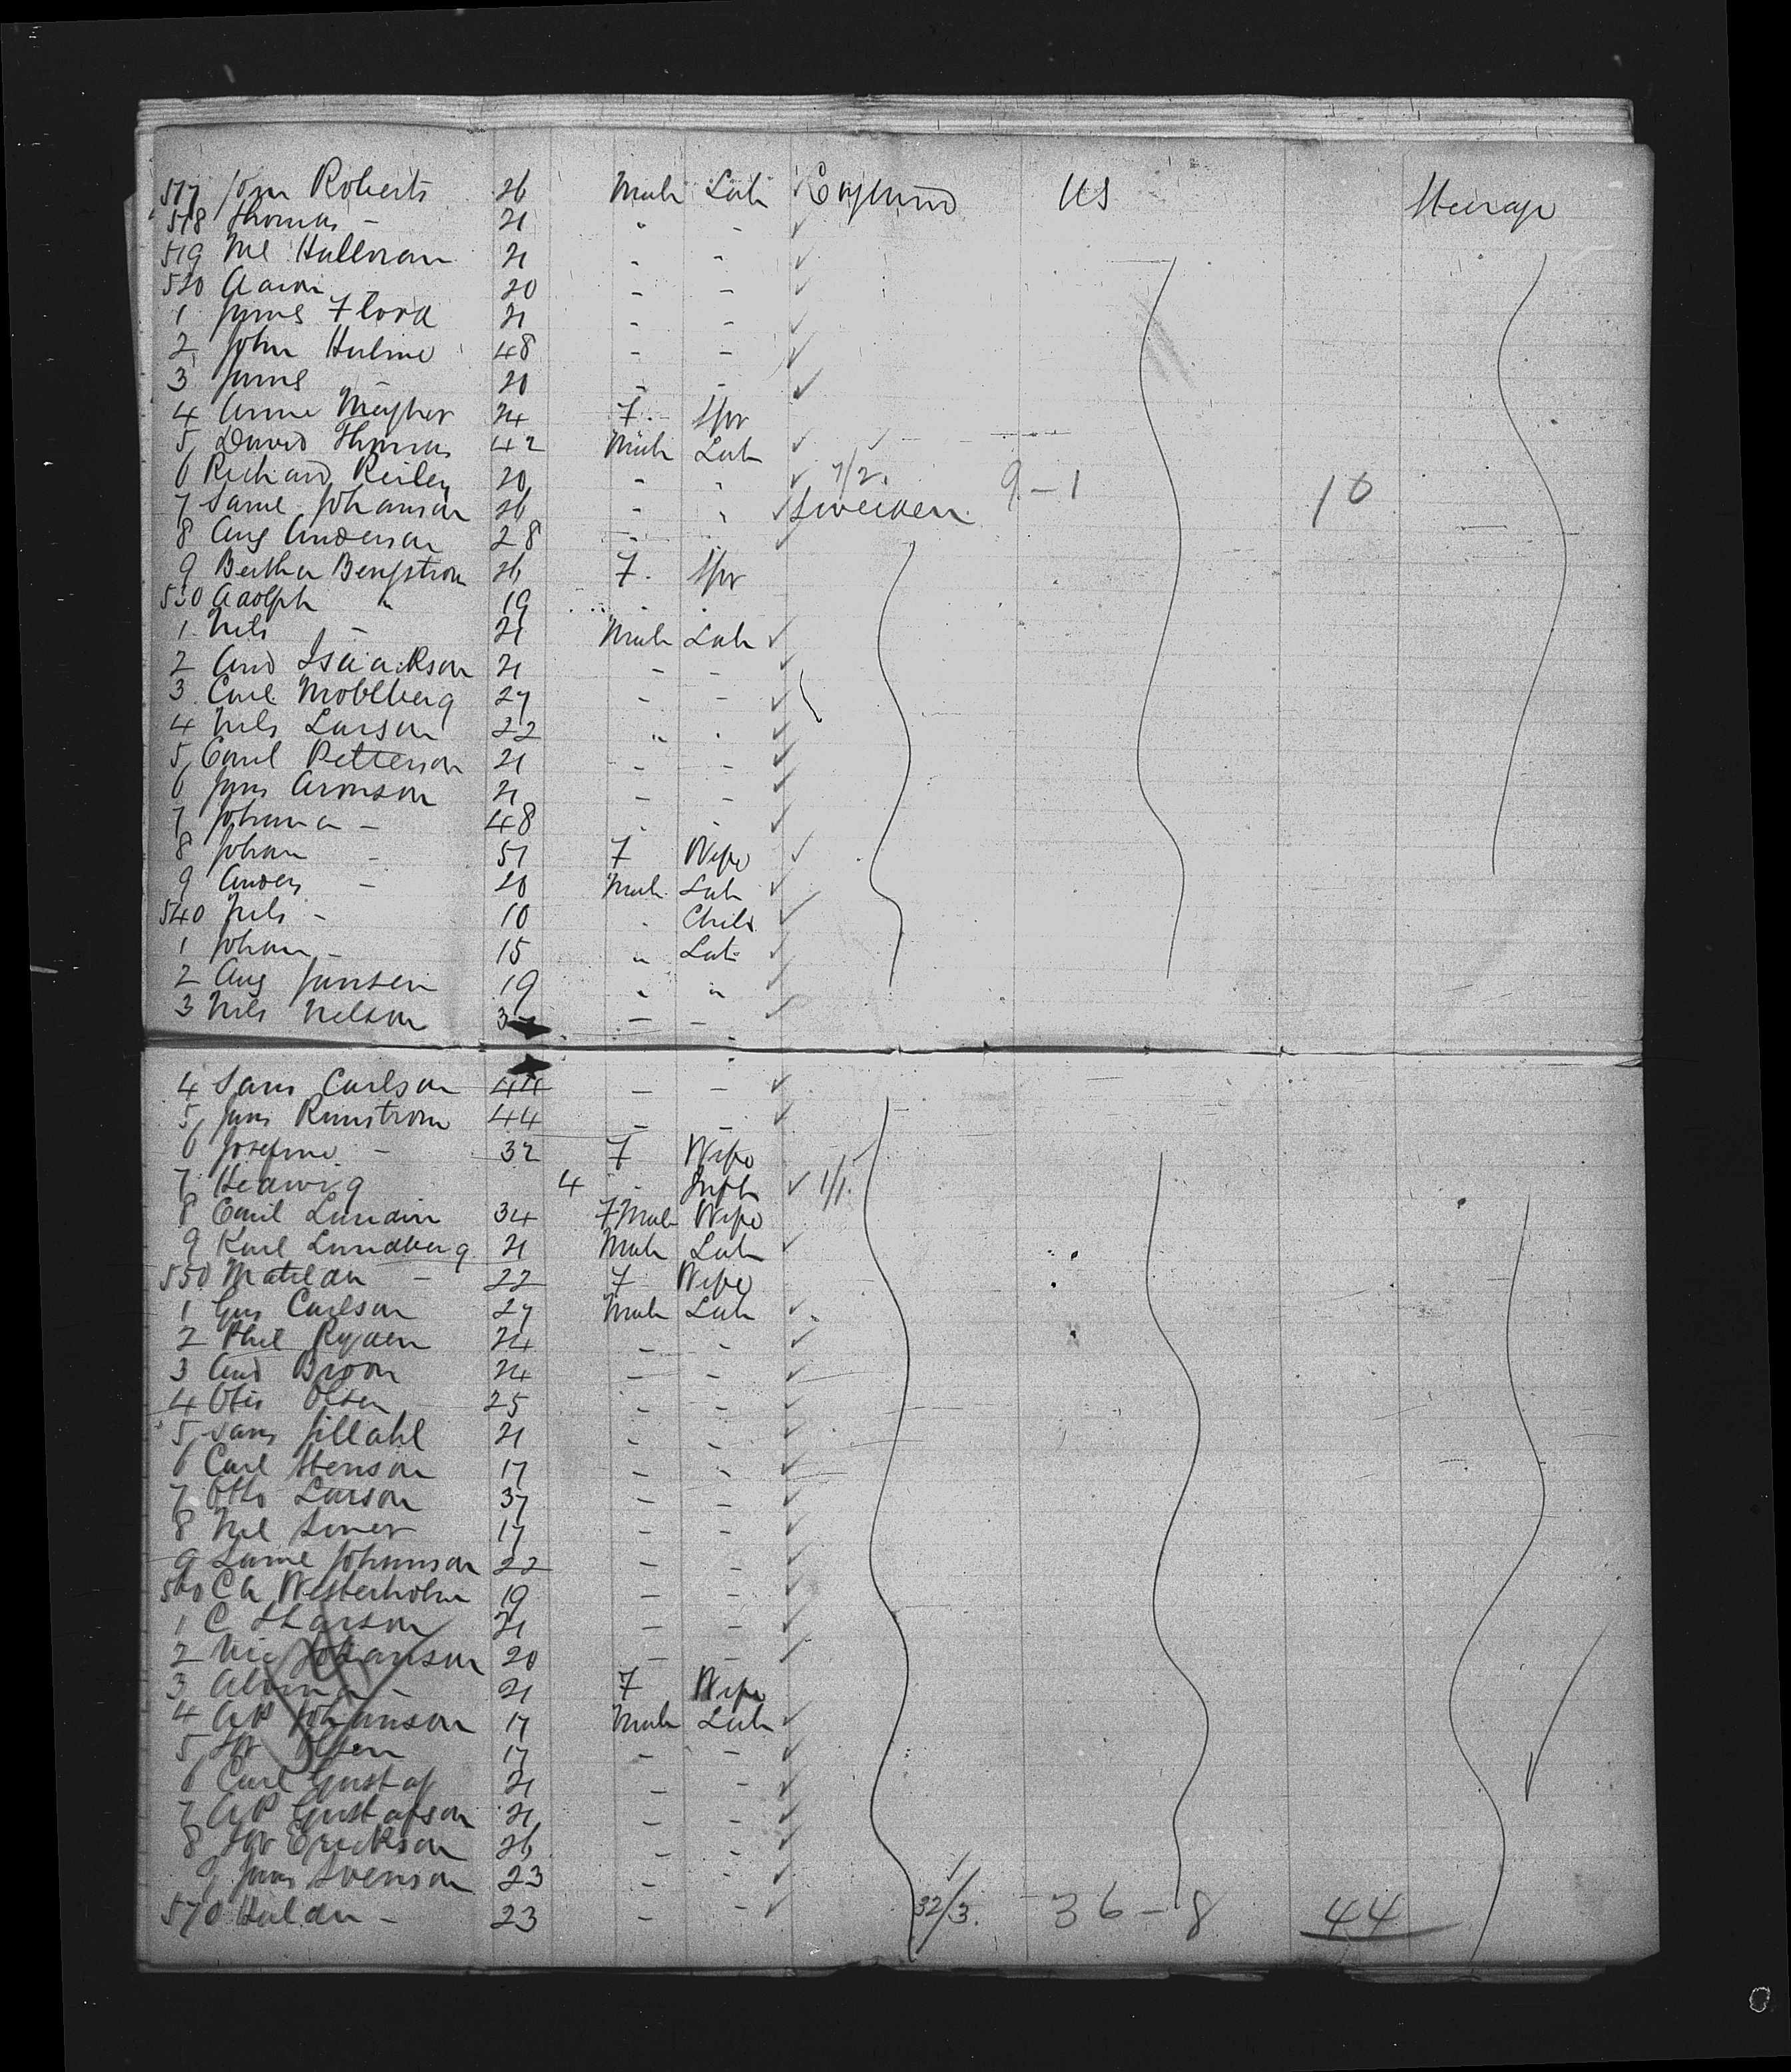 517 John Roberts 26 Male Lab England US Steerage
518 Thomas - 21 " -
519 Wl Hallman 21 - -
520 Aaron 20 - -
1 James Flood 21 - -
2 John Hulme 48 - -
3 James - 20 - -
4 Annie 24 F. Spr
5 David Thomas 42 Male Lab
6 Richard Reiley 20 - " 7/2. 9-1 10
7 Saml Johanson 26 - " Sweeden
8 Aug Anderson 28 - -
9 Bertha Bengstrom 26 F. Spr
530 Adolph " 19 - -
1 Nels - 21 Male Lab
2 And Isaackson 21 - -
3 Carl Moblberg 27 - -
4 Nels Larson 22 " "
5 Carl Petterson 21 - -
6 Jons Aronson 21 - -
7 Johanna - 48 - -
8 Johan - 51 F Wife
9 Anders - 20 Male Lab
540 Nels - 10 " Child
1 Johan - 15 " Lab
2 Aug Jansen 19 " "
3 Nels Nelson - -
4 Carlson 44 - -
5 Jons Runstrom 44 - -
6 Josefine - 32 F Wife
7 Hedwig 4 - Inft 1/1.
8 Emil Lundin 34 F Male Wife
9 Karl Lundberg 21 Male Lab
550 Matilda - 22 F Wife
1 Gus Carlson 27 Male Lab
2 Phil Ryden 24 - -
3 And Broon 24 - -
4 Otis Olsen 25 - -
5 Jillahl 21 - -
6 Carl Stenson 17 - -
7 Otto Larson 37 - -
8 17 - -
9 Johanson 22 - -
560 Ca Westerholm 19 - -
1 C Larson 21 - -
2 Nic Johanson 20 - -
3 - 21 F Wife
4 AP Johanson 17 Male Lab
5 Olsen 17 - -
6 Carl Gustaf 21 - -
7 AP Gustafson 21 - -
8 Erickson 26 - -
9 Jons Svenson 23 - -
570 Hulda - 23 - - 32/3. 36-8 44